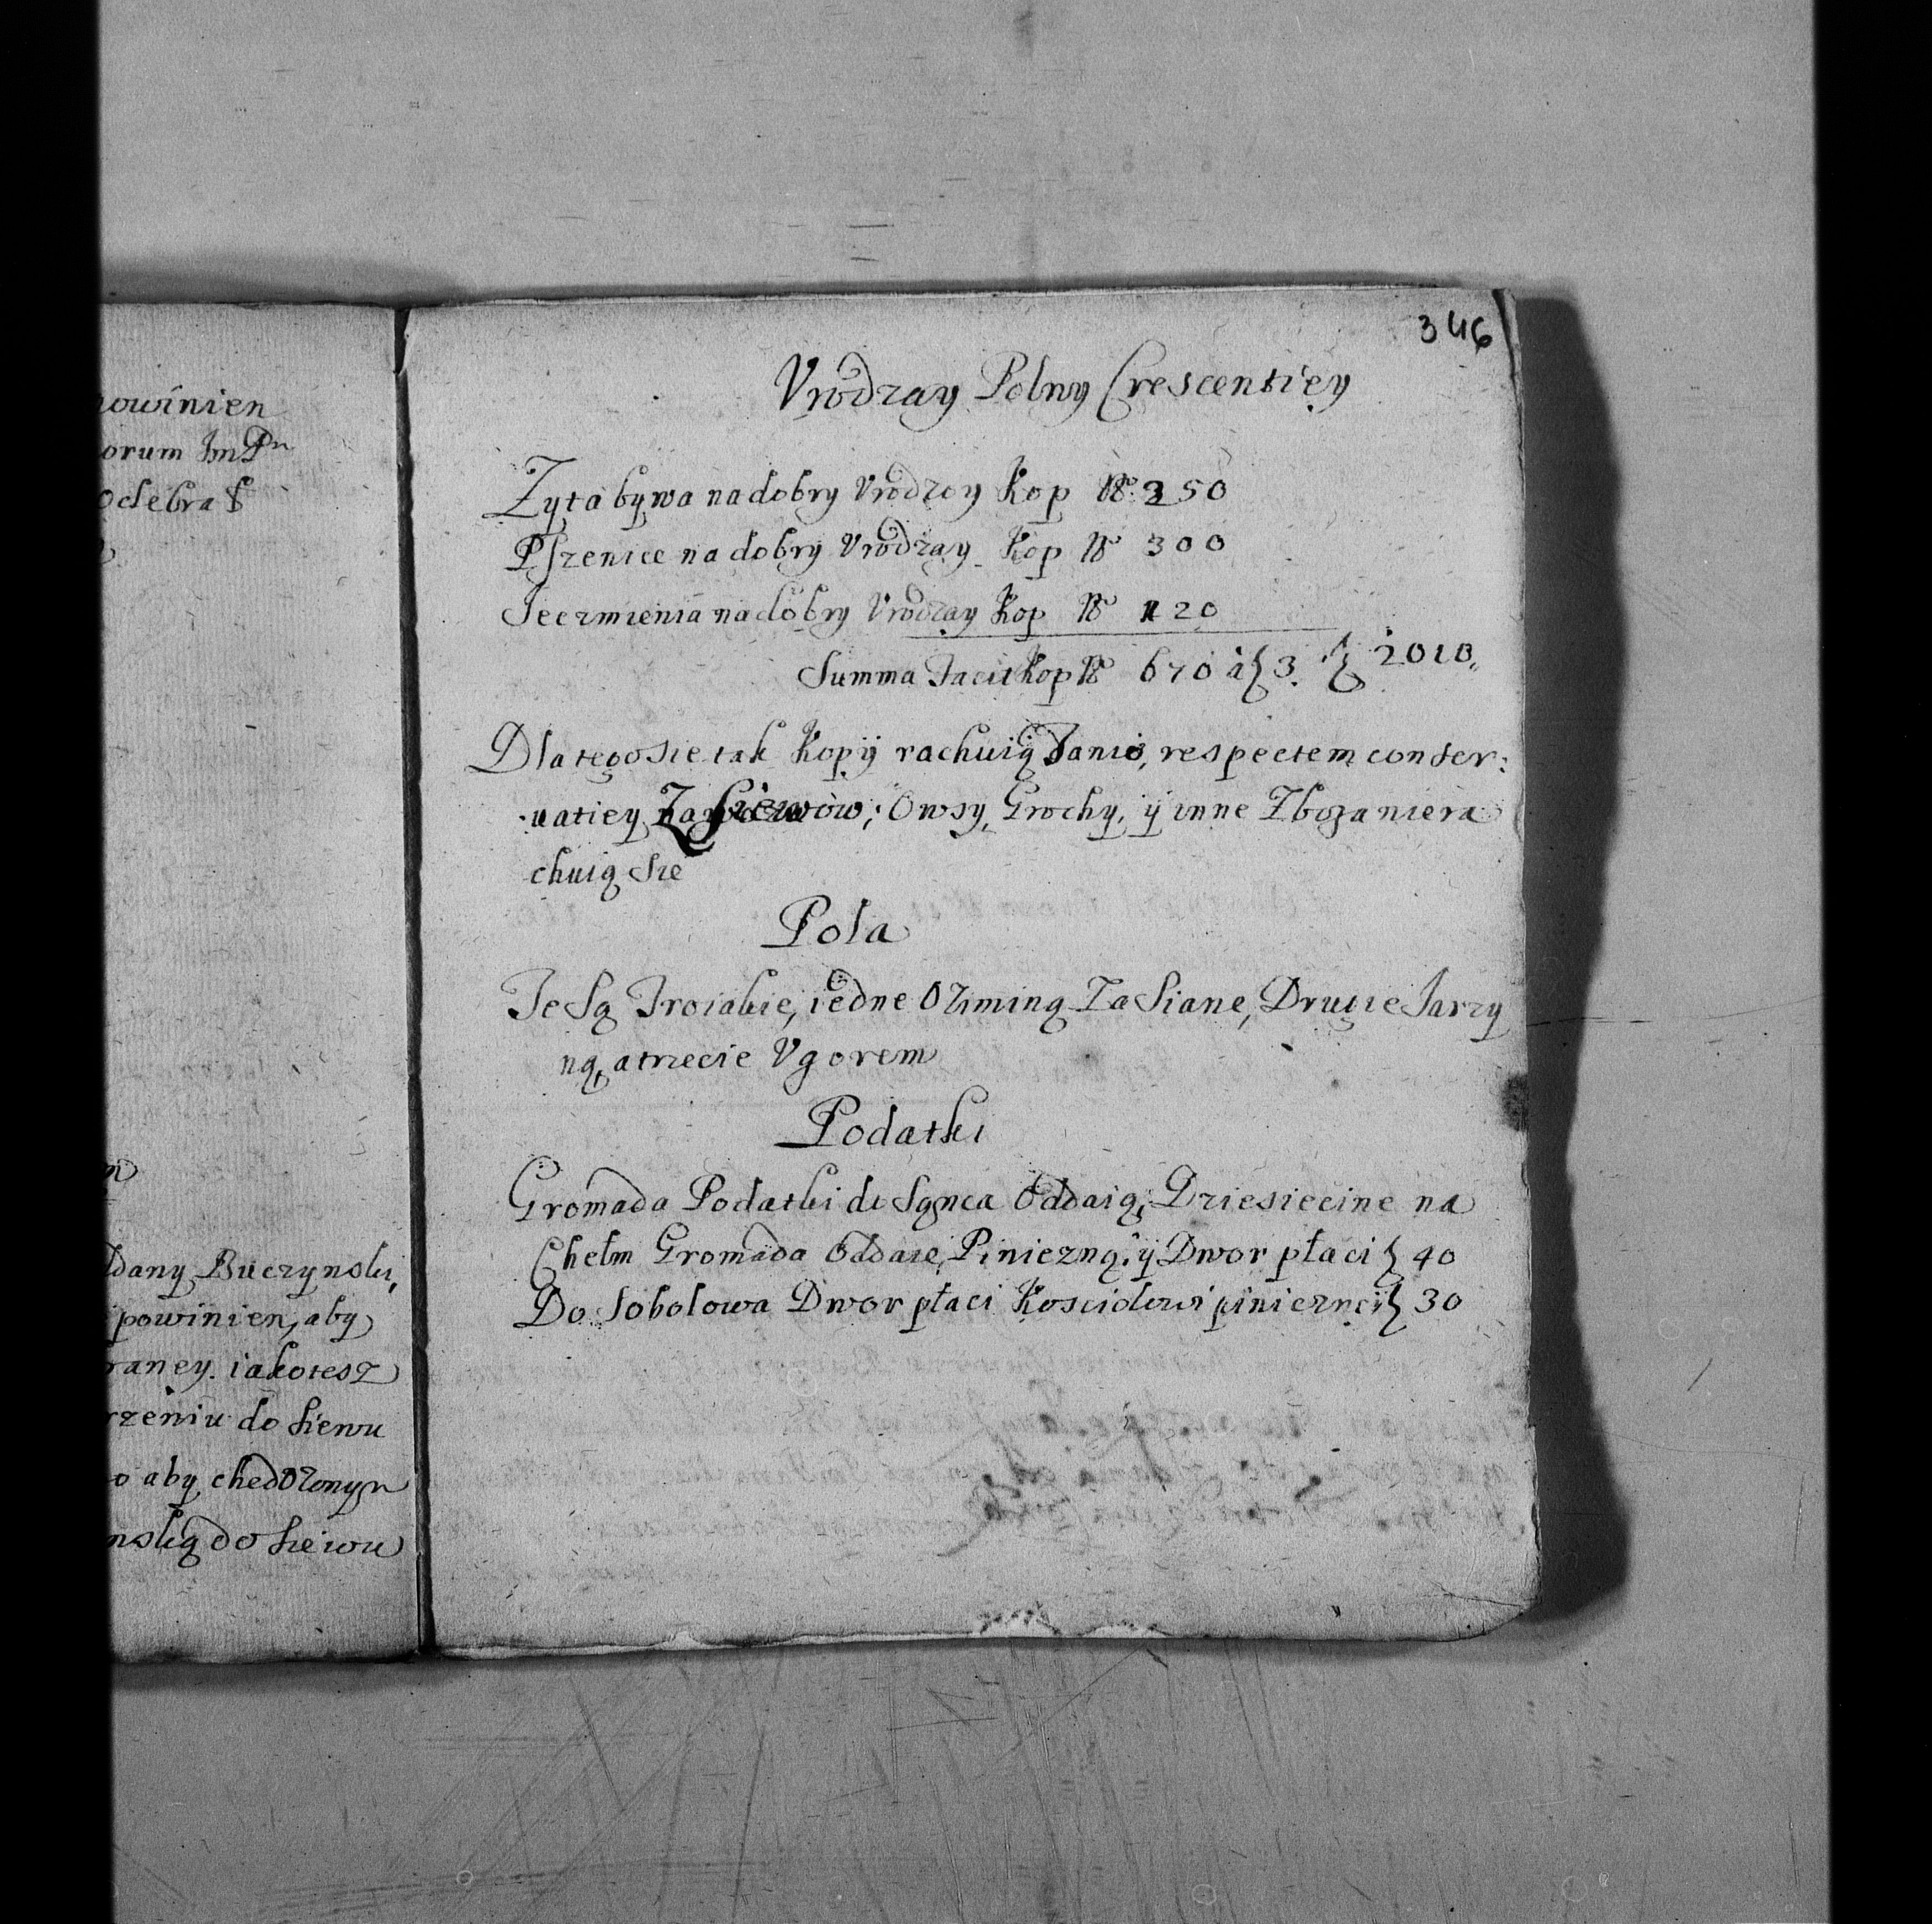 owinien
orum ImPn
odebrał
Buczynski,
powinien, aby
raney. iakotesz
rzeniu do siewu
o aby chedozonym
nską do siewu
346
Vrodzay Polny Crescentiey
Zyta bywa na dobry Vrodzoy Kop No 250
Pszenice na dobry Vrodzay Kop No 300
Jeczmienia na dobry Vrodzay Kop No 120
Summa Facit Kop No 670 à f 3. f 2010.
Dla tego sie tak Kopÿ rachuią Tanio, respectem conser:
uatiey Zasiewow; Owsy, Grochy, ÿ inne Zboza niera
chuią sie
Pola
Te są Troiakie, iedne Oziminą Zasiane, Drugie Jarzy
ną, a trzecie Vgorem
Podatki
Gromada Podatki do Sącza Oddaią, Dziesiecine na
Chełm Gromada Oddaie, Piniezną, ÿ Dwor płaci f 40
Do Sobolowa Dwor płaci Kosciołowi pinieznęÿ f 30